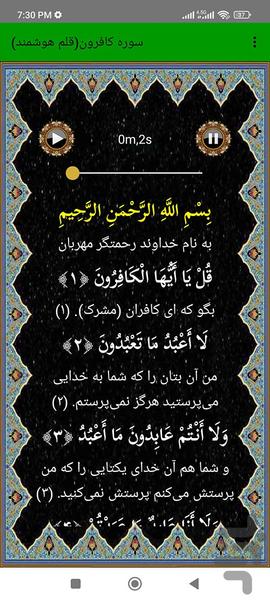 7:30 PM
سوره کافرون(قلم هوشمند)
0m,2s
بِسْمِ اللَّهِ الرَّحْمَنِ الرَّحِيمِ
به نام خداوند رحمتگر مهربان
قُلْ يَا أَيُّهَا الْكَافِرُونَ ﴿۱﴾
بگو که ای کافران (مشرک). (۱)
لَا أَعْبُدُ مَا تَعْبُدُونَ ﴿۲﴾
من آن بتان را که شما به خدایی
می‌پرستید هرگز نمی‌پرستم. (۲)
وَلَا أَنْتُمْ عَابِدُونَ مَا أَعْبُدُ ﴿۳﴾
و شما هم آن خدای یکتایی را که من
پرستش می‌کنم پرستش نمی‌کنید. (۳)